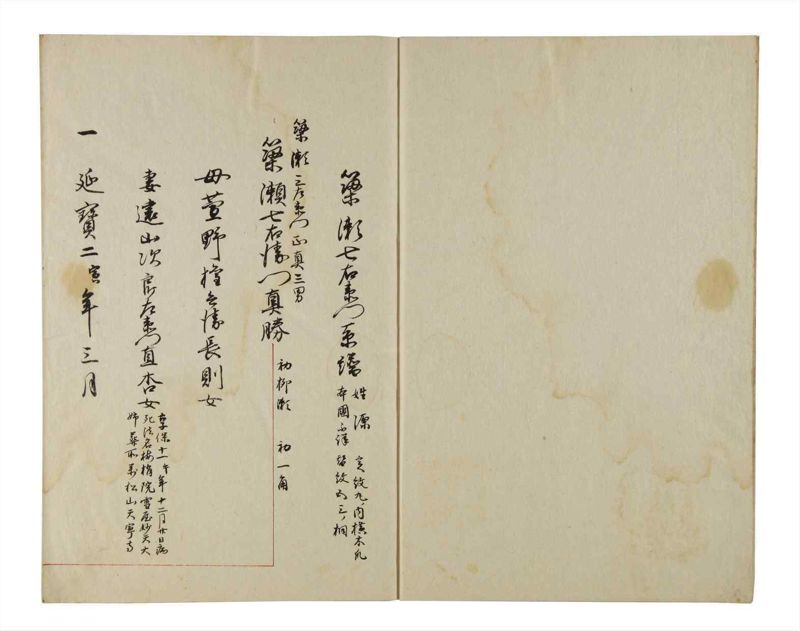 簗瀬七右衛門系譜
姓 源 定紋丸ノ内横木瓜
本國 替紋五三ノ桐
簗瀬三左衛門正真三男
簗瀬七右衛門真勝
初柳瀬 初一角
母萱野権兵衛長則女
妻遠山次郎左衛門直 女
享保十一午年十二月廿日病
死法名梅 院雪庭妙天大
姉墓所萬松山天寧寺
一 延寶二寅年三月